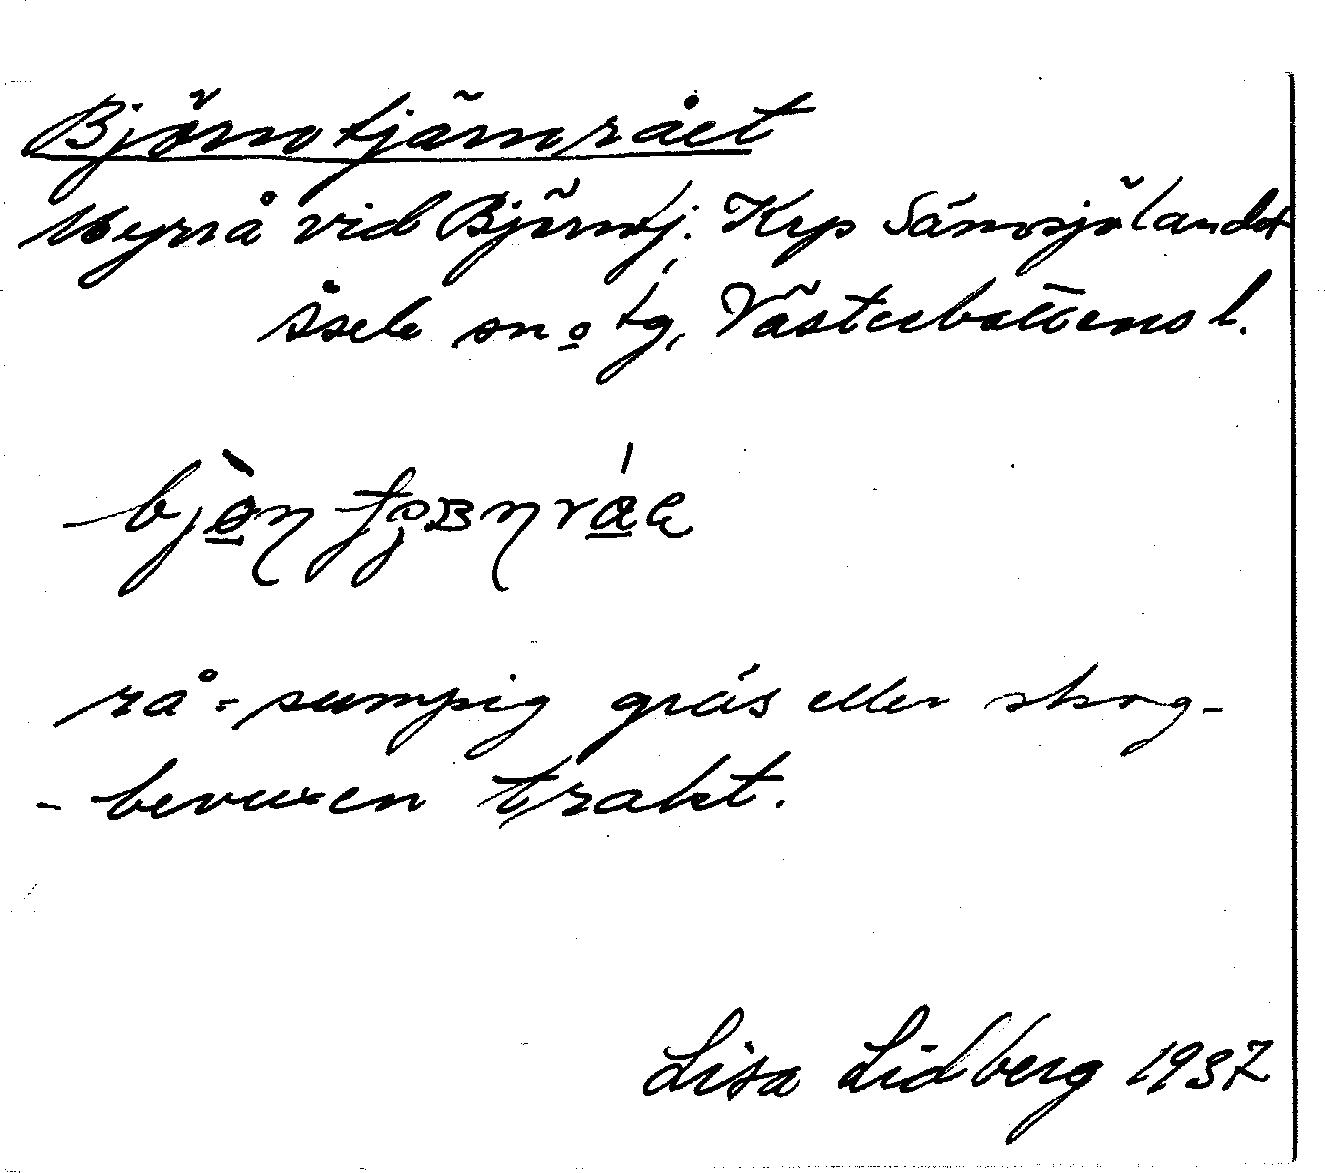 Björntjärnrået
Myrrå vid Björntj. Krp Sämsjölandet
Åsele sn o tg, Västerbottens l.
rå = sumpig gräs eller skog-
- bevuxen trakt.
Lisa Lidberg 1937